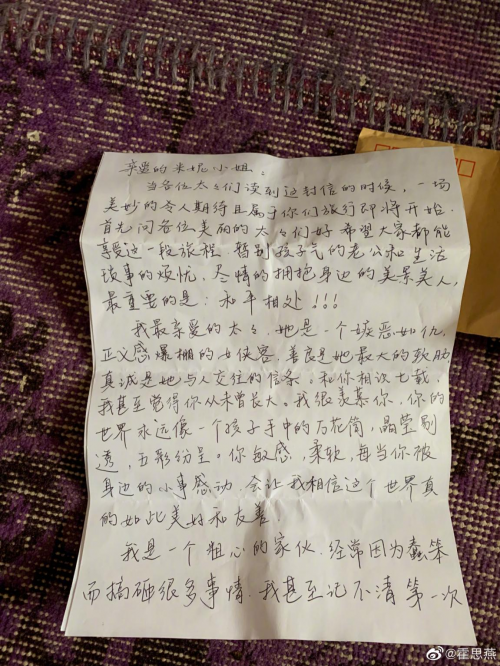 亲爱的米妮小姐：
当各位太太们读到这封信的时候，一场
美妙的令人期待且属于你们旅行即将开始.
首先问各位美丽的太太们好 希望大家都能
享受这一段旅程. 暂别孩子气的老公和生活
琐事的烦忧，尽情的拥抱身边的美景美人，
最重要的是：和平相处！！！
我最亲爱的太太，她是一个嫉恶如仇，
正义感爆棚的女侠客，善良是她最大的软肋
真诚是她与人交往的信条，和你相识七载，
我甚至觉得你从未曾长大。我很羡慕你，你的
世界永远像一个孩子手中的万花筒，晶莹剔
透，五彩纷呈。你敏感，柔软，每当你被
身边的小事感动，会让我相信这个世界真
的如此美好和友善！
我是一个粗心的家伙.经常因为蠢笨
而搞砸很多事情.我甚至记不清第一次
@霍思燕